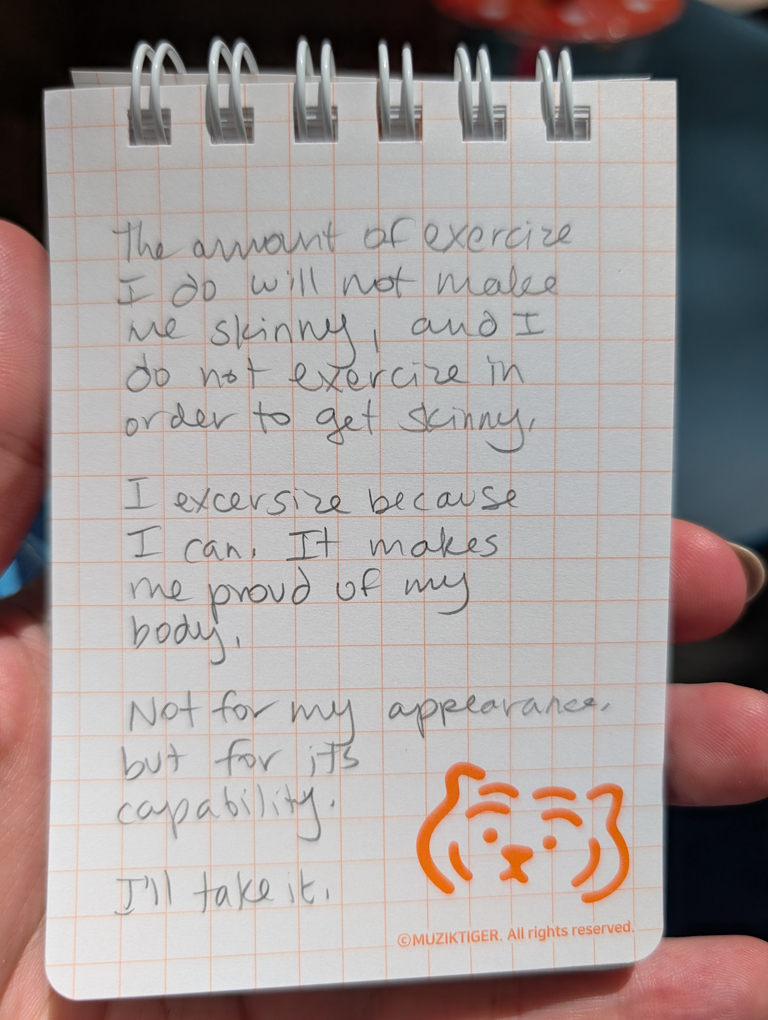 The amount of exercize
I do will not make
me skinny, and I
do not exercize in
order to get skinny.
I excersize because
I can. It makes
me proud of my
body.
Not for my appearance.
but for its
capability.
I'll take it.
©MUZIKTIGER. All rights reserved.